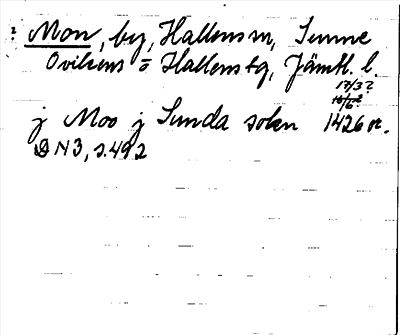 Mon, by, Hallens sn, Sunne
Ovikens o Hallens tg, Jämtl. l.
17/3?
j Moo j Sunda sokn 1426 or.
DN3, s.492